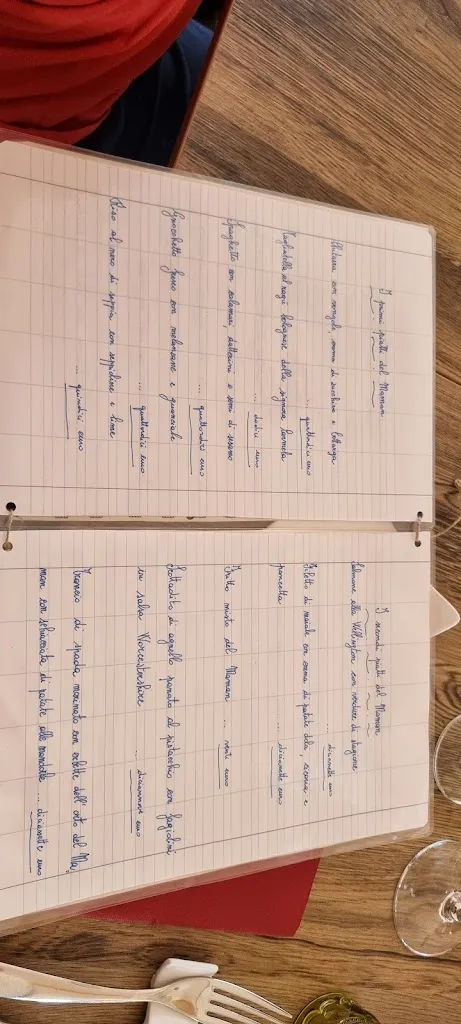 I primi piatti del Maman
Chitarra con vongole, crema di zucchine e bottarga
... quattordici euro
Tagliatella al ragù bolognese della signora Carmela
... dodici euro
Spaghetto con calamari, datterini e semi di sesamo
... quattordici euro
Gnocchetto fresco con melanzane e guanciale
... quattordici euro
Riso al nero di seppia con seppioline e lime
... quindici euro
I secondi piatti del Maman
Salmone alla Wellington con verdure di stagione
... diciannette euro
Filetto di maiale con crema di patate dolci, cicoria e
pancetta ... diciassette euro
Fritto misto del Maman ... venti euro
Scottadito di agnello panato al pistacchio con fagiolini
in salsa Worcestershire ... diciannove euro
Trancio di spada marinato con erbette dell'orto del Ma,
man con schiacciata di patate alle mandorle ... diciassette euro